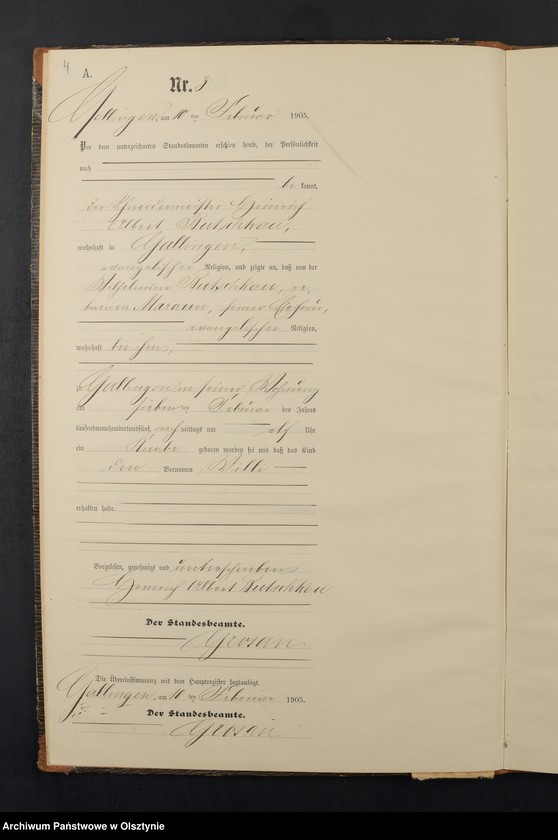 4
A.
Nr. 3
Gallingen, am 10 ten Februar 1905.
Vor dem unterzeichneten Standesbeamten erschien heute, der Persönlichkeit
nach
be kannt,
der Schneidermeister Heinrich
Albert Butschkau,
wohnhaft in Gallingen,
evangelischer Religion, und zeigte an, daß von der
Wilhelmine Butschkau, ge-
borenen Maraun, seiner Ehefrau,
evangelischer Religion,
wohnhaft bei ihm,
zu Gallingen in seiner Wohnung
am sieben ten Februar des Jahres
tausendneunhundertundfünf, nachmittags um elf Uhr
ein Knabe geboren worden sei und daß das Kind
den Vornamen Willi
erhalten habe.
Vorgelesen, genehmigt und unterschrieben
Heinrich Albert Butschkau
Der Standesbeamte.
Grosau
Die Übereinstimmung mit dem Hauptregister beglaubigt.
Gallingen, am 10 ten Februar 1905.
Der Standesbeamte.
Grosau
Archiwum Państwowe w Olsztynie